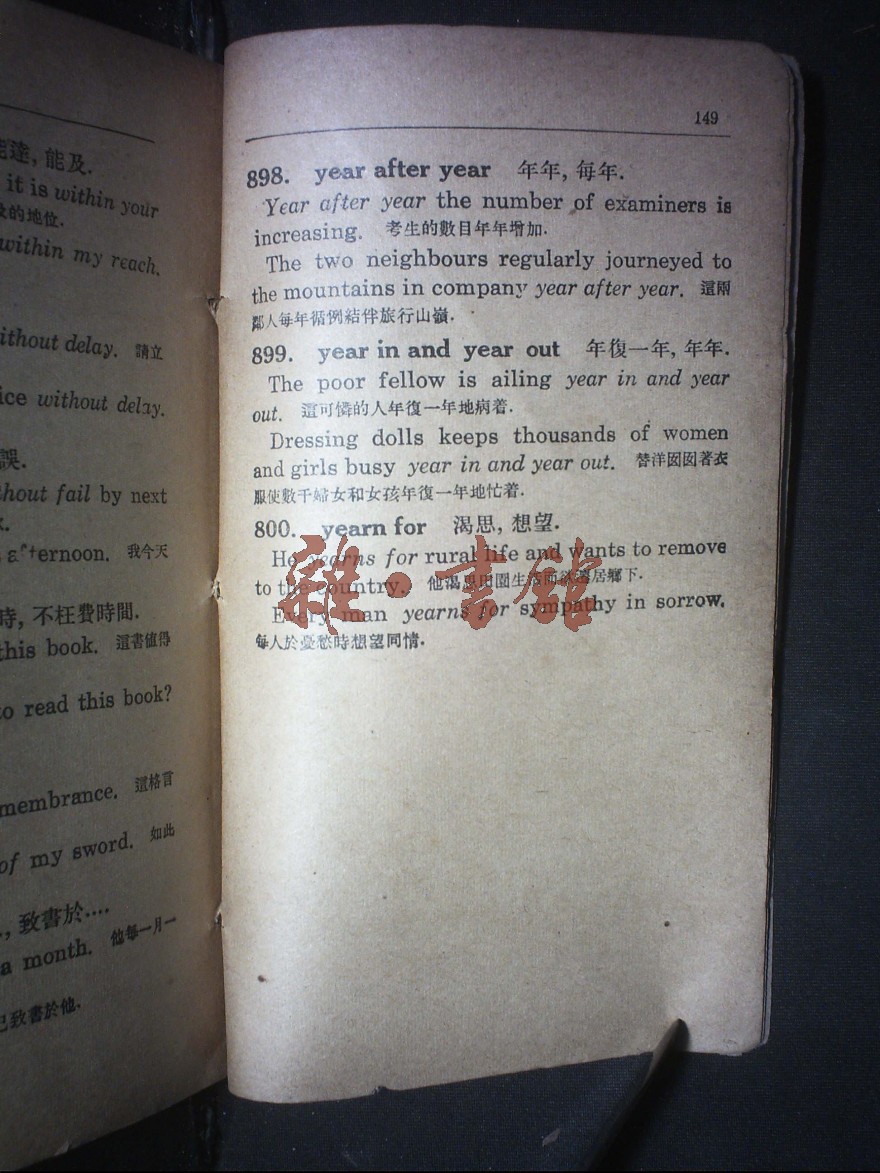 能達, 能及.
it is within your
的地位.
within my reach.
without delay. 請立
ice without delay.
誤.
without fail by next
afternoon. 我今天
時, 不枉費時間.
this book. 這書值得
to read this book?
membrance. 這格言
of my sword. 如此
., 致書於....
a month. 他每一月一
已致書於他.
149
898. year after year 年年, 每年.
Year after year the number of examiners is
increasing. 考生的數目年年增加.
The two neighbours regularly journeyed to
the mountains in company year after year. 這兩
鄰人每年循例結伴旅行山嶺.
899. year in and year out 年復一年, 年年.
The poor fellow is ailing year in and year
out. 這可憐的人年復一年地病着.
Dressing dolls keeps thousands of women
and girls busy year in and year out. 替洋囡囡著衣
服使數千婦女和女孩年復一年地忙着.
800. yearn for 渴思, 想望.
He yearns for rural life and wants to remove
to the country. 他渴思田園生活而欲遷居鄉下.
Every man yearns for sympathy in sorrow.
每人於憂愁時想望同情.
雜·書館